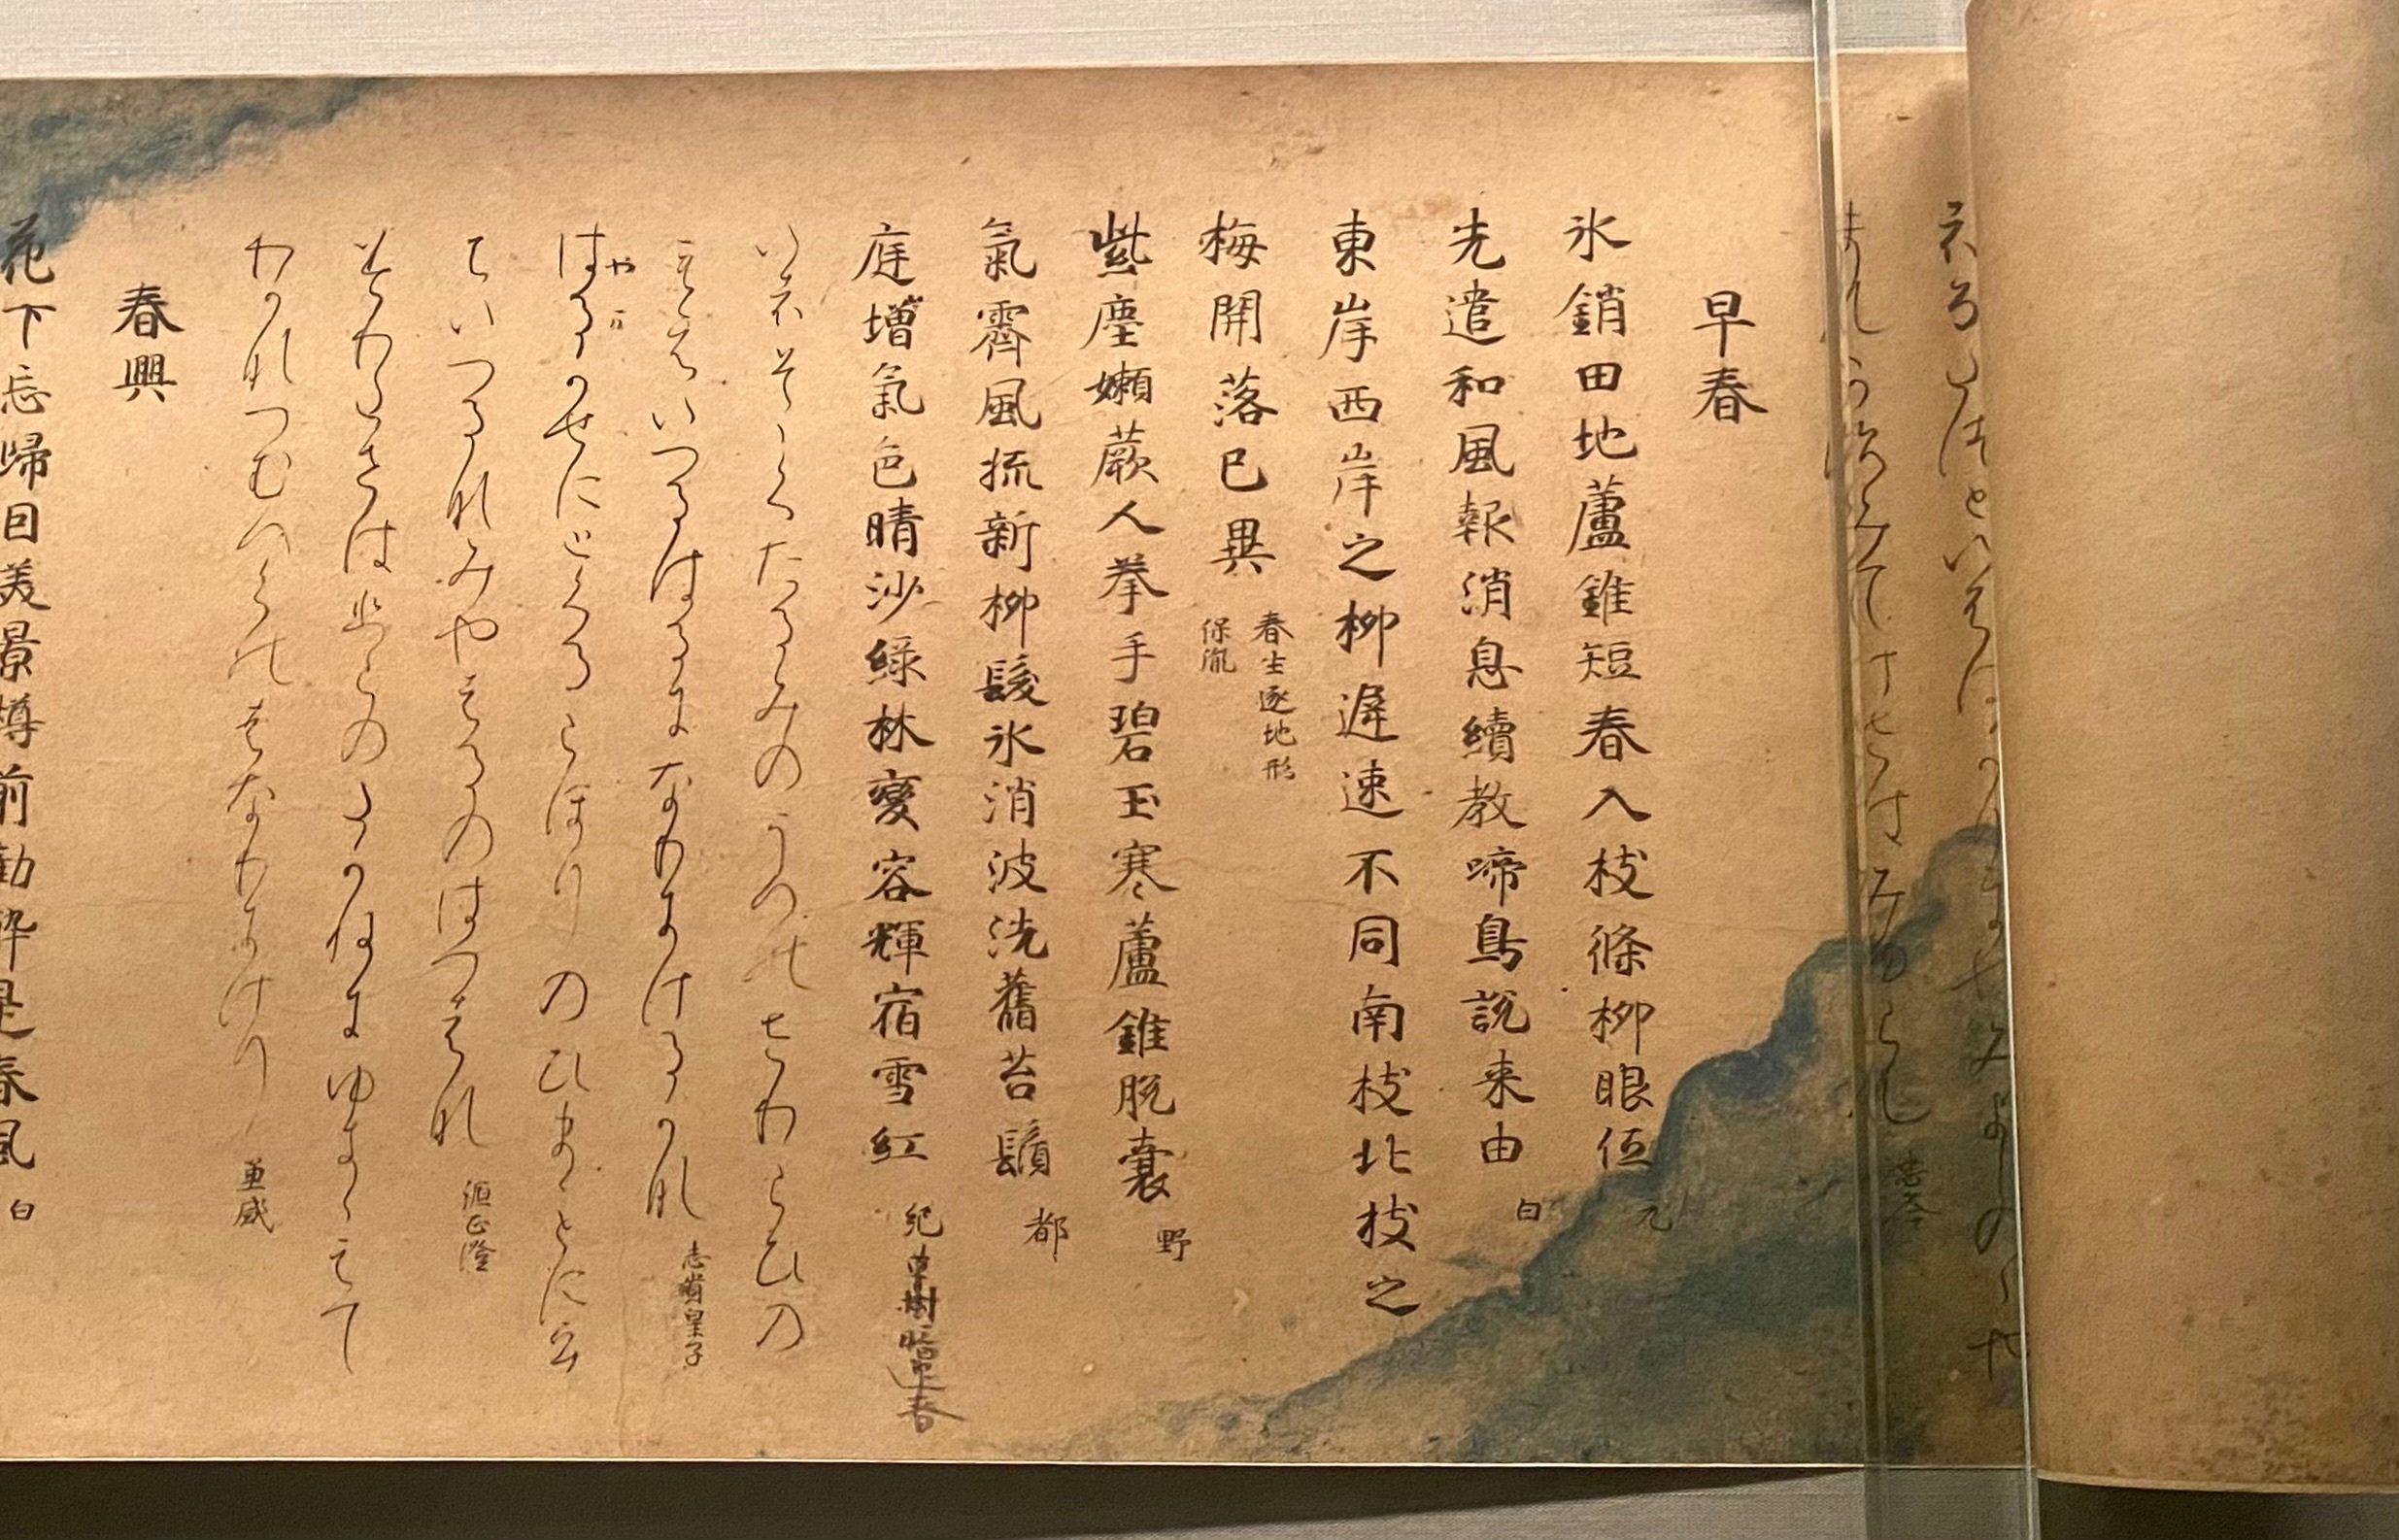 はるたつといふはかりにやみよしのゝや
まもかすみてけさはみゆらむ 忠岑
早春
氷銷田地蘆錐短春入枝條柳眼低 元
先遣和風報消息續教啼鳥説来由 白
東岸西岸之柳遅速不同南枝北枝之
梅開落已異 春生逐地形 保胤
紫塵嬾蕨人拳手碧玉寒蘆錐脱嚢 野
氣霽風梳新柳髪氷消波洗舊苔鬚 都
庭増氣色晴沙緑林變容輝宿雪紅 紀
いはそゝくたるみのうへのさわらひの
もえいつるはるになりにけるかな 志貴皇子
はるかせにとくるこほりのひまことにう
ちいつるなみやはるのはつはな 源正澄
みわたせはひらのたかねにゆきゝえて
わかなつむへくのはなりにけり 兼盛
春興
花下忘歸因美景樽前勧酔是春風 白